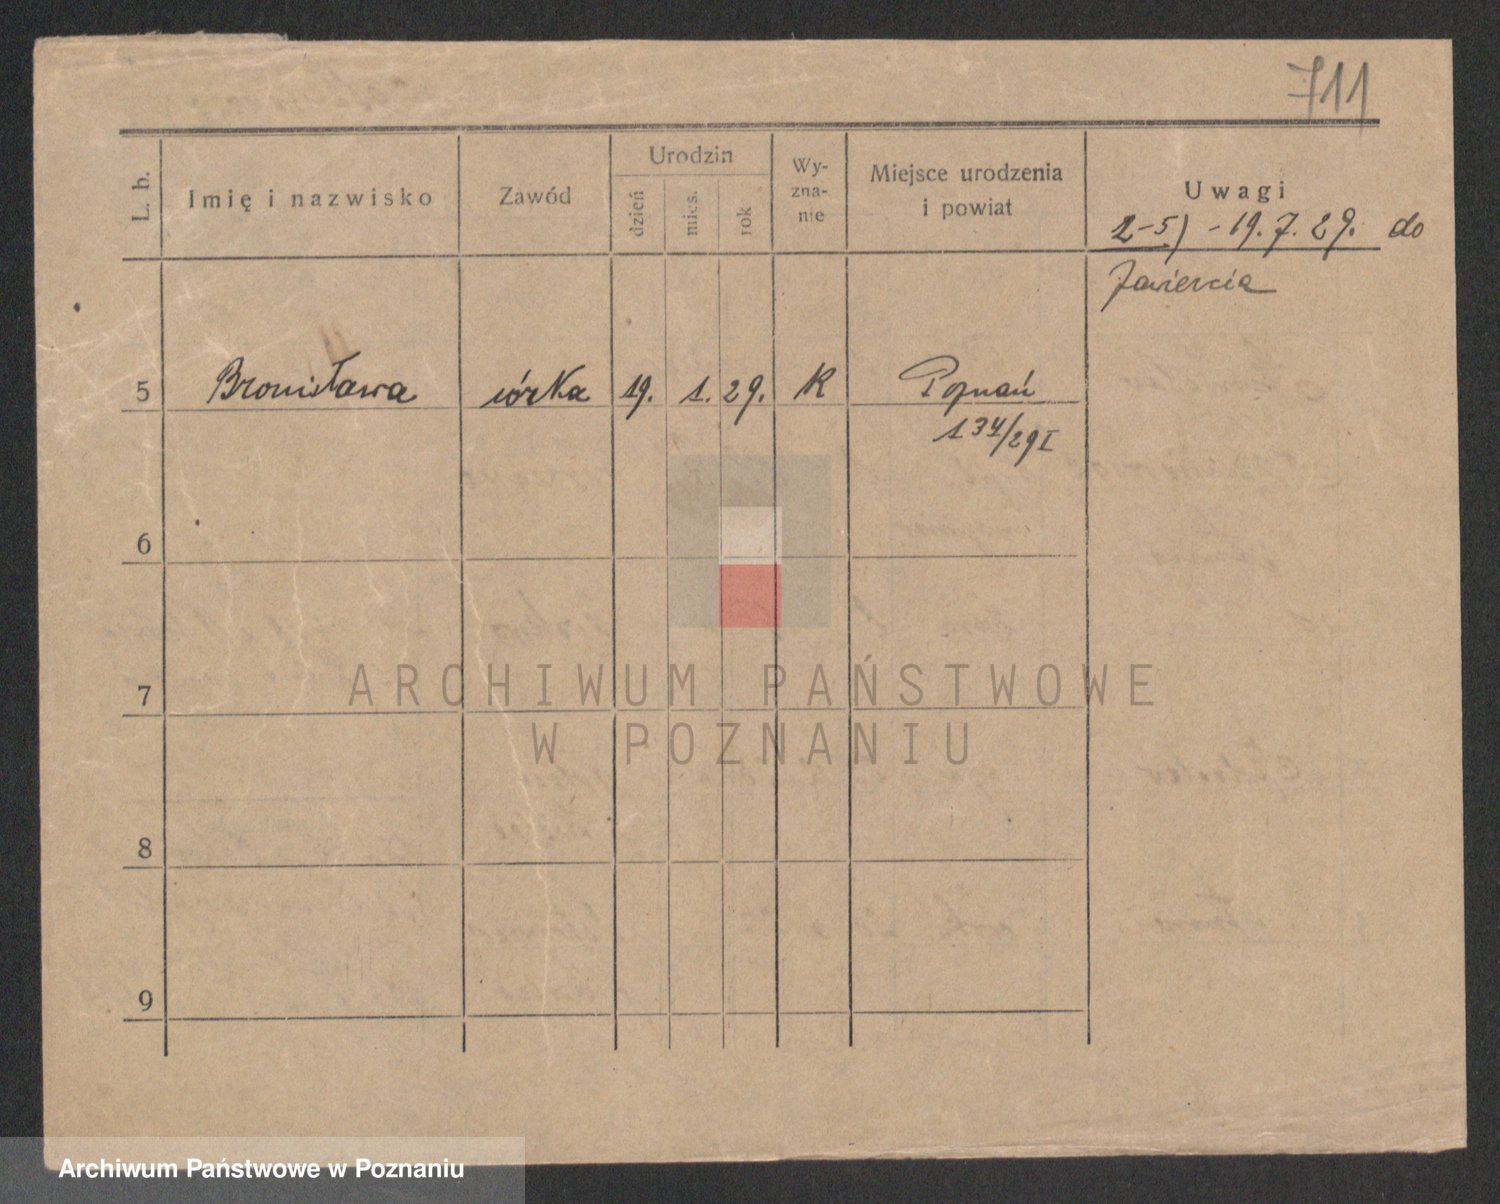 711
L. b.
Imię i nazwisko
Zawód
Urodzin
dzień
mies.
rok
Wy-
zna-
nie
Miejsce urodzenia
i powiat
Uwagi
2-5) - 19. 7. 29. do
Zawiercia
5 Bronisława córka 19. 1. 29. K Poznań
134/29 I
6
7
8
9
ARCHIWUM PAŃSTWOWE
W POZNANIU
Archiwum Państwowe w Poznaniu